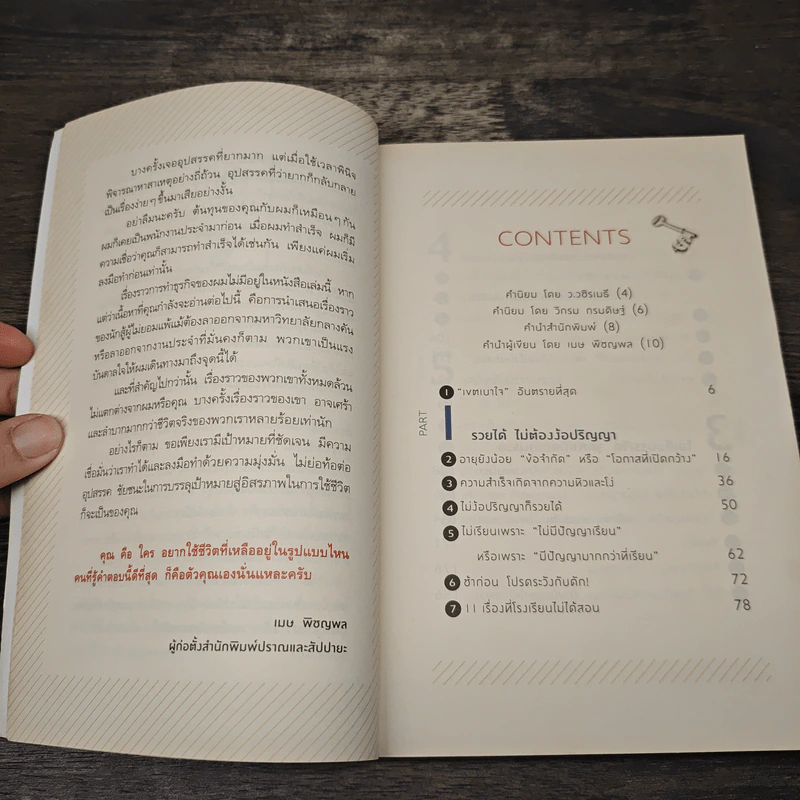 บางครั้งเจออุปสรรคที่ยากมาก แต่เมื่อใช้เวลาพินิจ
พิจารณาหาสาเหตุอย่างถี่ถ้วน อุปสรรคที่ว่ายากก็กลับกลาย
เป็นเรื่องง่ายๆ ขึ้นมาเสียอย่างงั้น
อย่าลืมนะครับ ต้นทุนของคุณกับผมก็เหมือนๆ กัน
ผมก็เคยเป็นพนักงานประจำมาก่อน เมื่อผมทำสำเร็จ ผมก็มี
ความเชื่อว่าคุณก็สามารถทำสำเร็จได้เช่นกัน เพียงแค่ผมเริ่ม
ลงมือทำก่อนเท่านั้น
เรื่องราวการทำธุรกิจของผมไม่มีอยู่ในหนังสือเล่มนี้ หาก
แต่ว่าเนื้อหาที่คุณกำลังจะอ่านต่อไปนี้ คือการนำเสนอเรื่องราว
ของนักสู้ผู้ไม่ยอมแพ้แม้ต้องลาออกจากมหาวิทยาลัยกลางคัน
หรือลาออกจากงานประจำที่มั่นคงก็ตาม พวกเขาเป็นแรง
บันดาลใจให้ผมเดินทางมาถึงจุดนี้ได้
และที่สำคัญไปกว่านั้น เรื่องราวของพวกเขาทั้งหมดล้วน
ไม่แตกต่างจากผมหรือคุณ บางครั้งเรื่องราวของเขา อาจเศร้า
และลำบากมากกว่าชีวิตจริงของพวกเราหลายร้อยเท่านัก
อย่างไรก็ตาม ขอเพียงเรามีเป้าหมายที่ชัดเจน มีความ
เชื่อมั่นว่าเราทำได้และลงมือทำด้วยความมุ่งมั่น ไม่ย่อท้อต่อ
อุปสรรค ชัยชนะในการบรรลุเป้าหมายสู่อิสรภาพในการใช้ชีวิต
ก็จะเป็นของคุณ
คุณ คือ ใคร อยากใช้ชีวิตที่เหลืออยู่ในรูปแบบไหน
คนที่รู้คำตอบนี้ดีที่สุด ก็คือตัวคุณเองนั่นแหละครับ
เมษ พิชญพล
ผู้ก่อตั้งสำนักพิมพ์ปราณและสัปปายะ
CONTENTS
คำนิยม โดย ว.วชิรเมธี (4)
คำนิยม โดย วิกรม กรมดิษฐ์ (6)
คำนำสำนักพิมพ์ (8)
คำนำผู้เขียน โดย เมษ พิชญพล (10)
1 "เขตเบาใจ" อันตรายที่สุด 6
PART I รวยได้ ไม่ต้องง้อปริญญา
2 อายุยังน้อย "ข้อจำกัด" หรือ "โอกาสที่เปิดกว้าง" 16
3 ความสำเร็จเกิดจากความหิวและโง่ 36
4 ไม่ง้อปริญญาก็รวยได้ 50
5 ไม่เรียนเพราะ "ไม่มีปัญญาเรียน"
หรือเพราะ "มีปัญญามากกว่าที่เรียน" 62
6 ช้าก่อน โปรดระวังกับดัก! 72
7 11 เรื่องที่โรงเรียนไม่ได้สอน 78